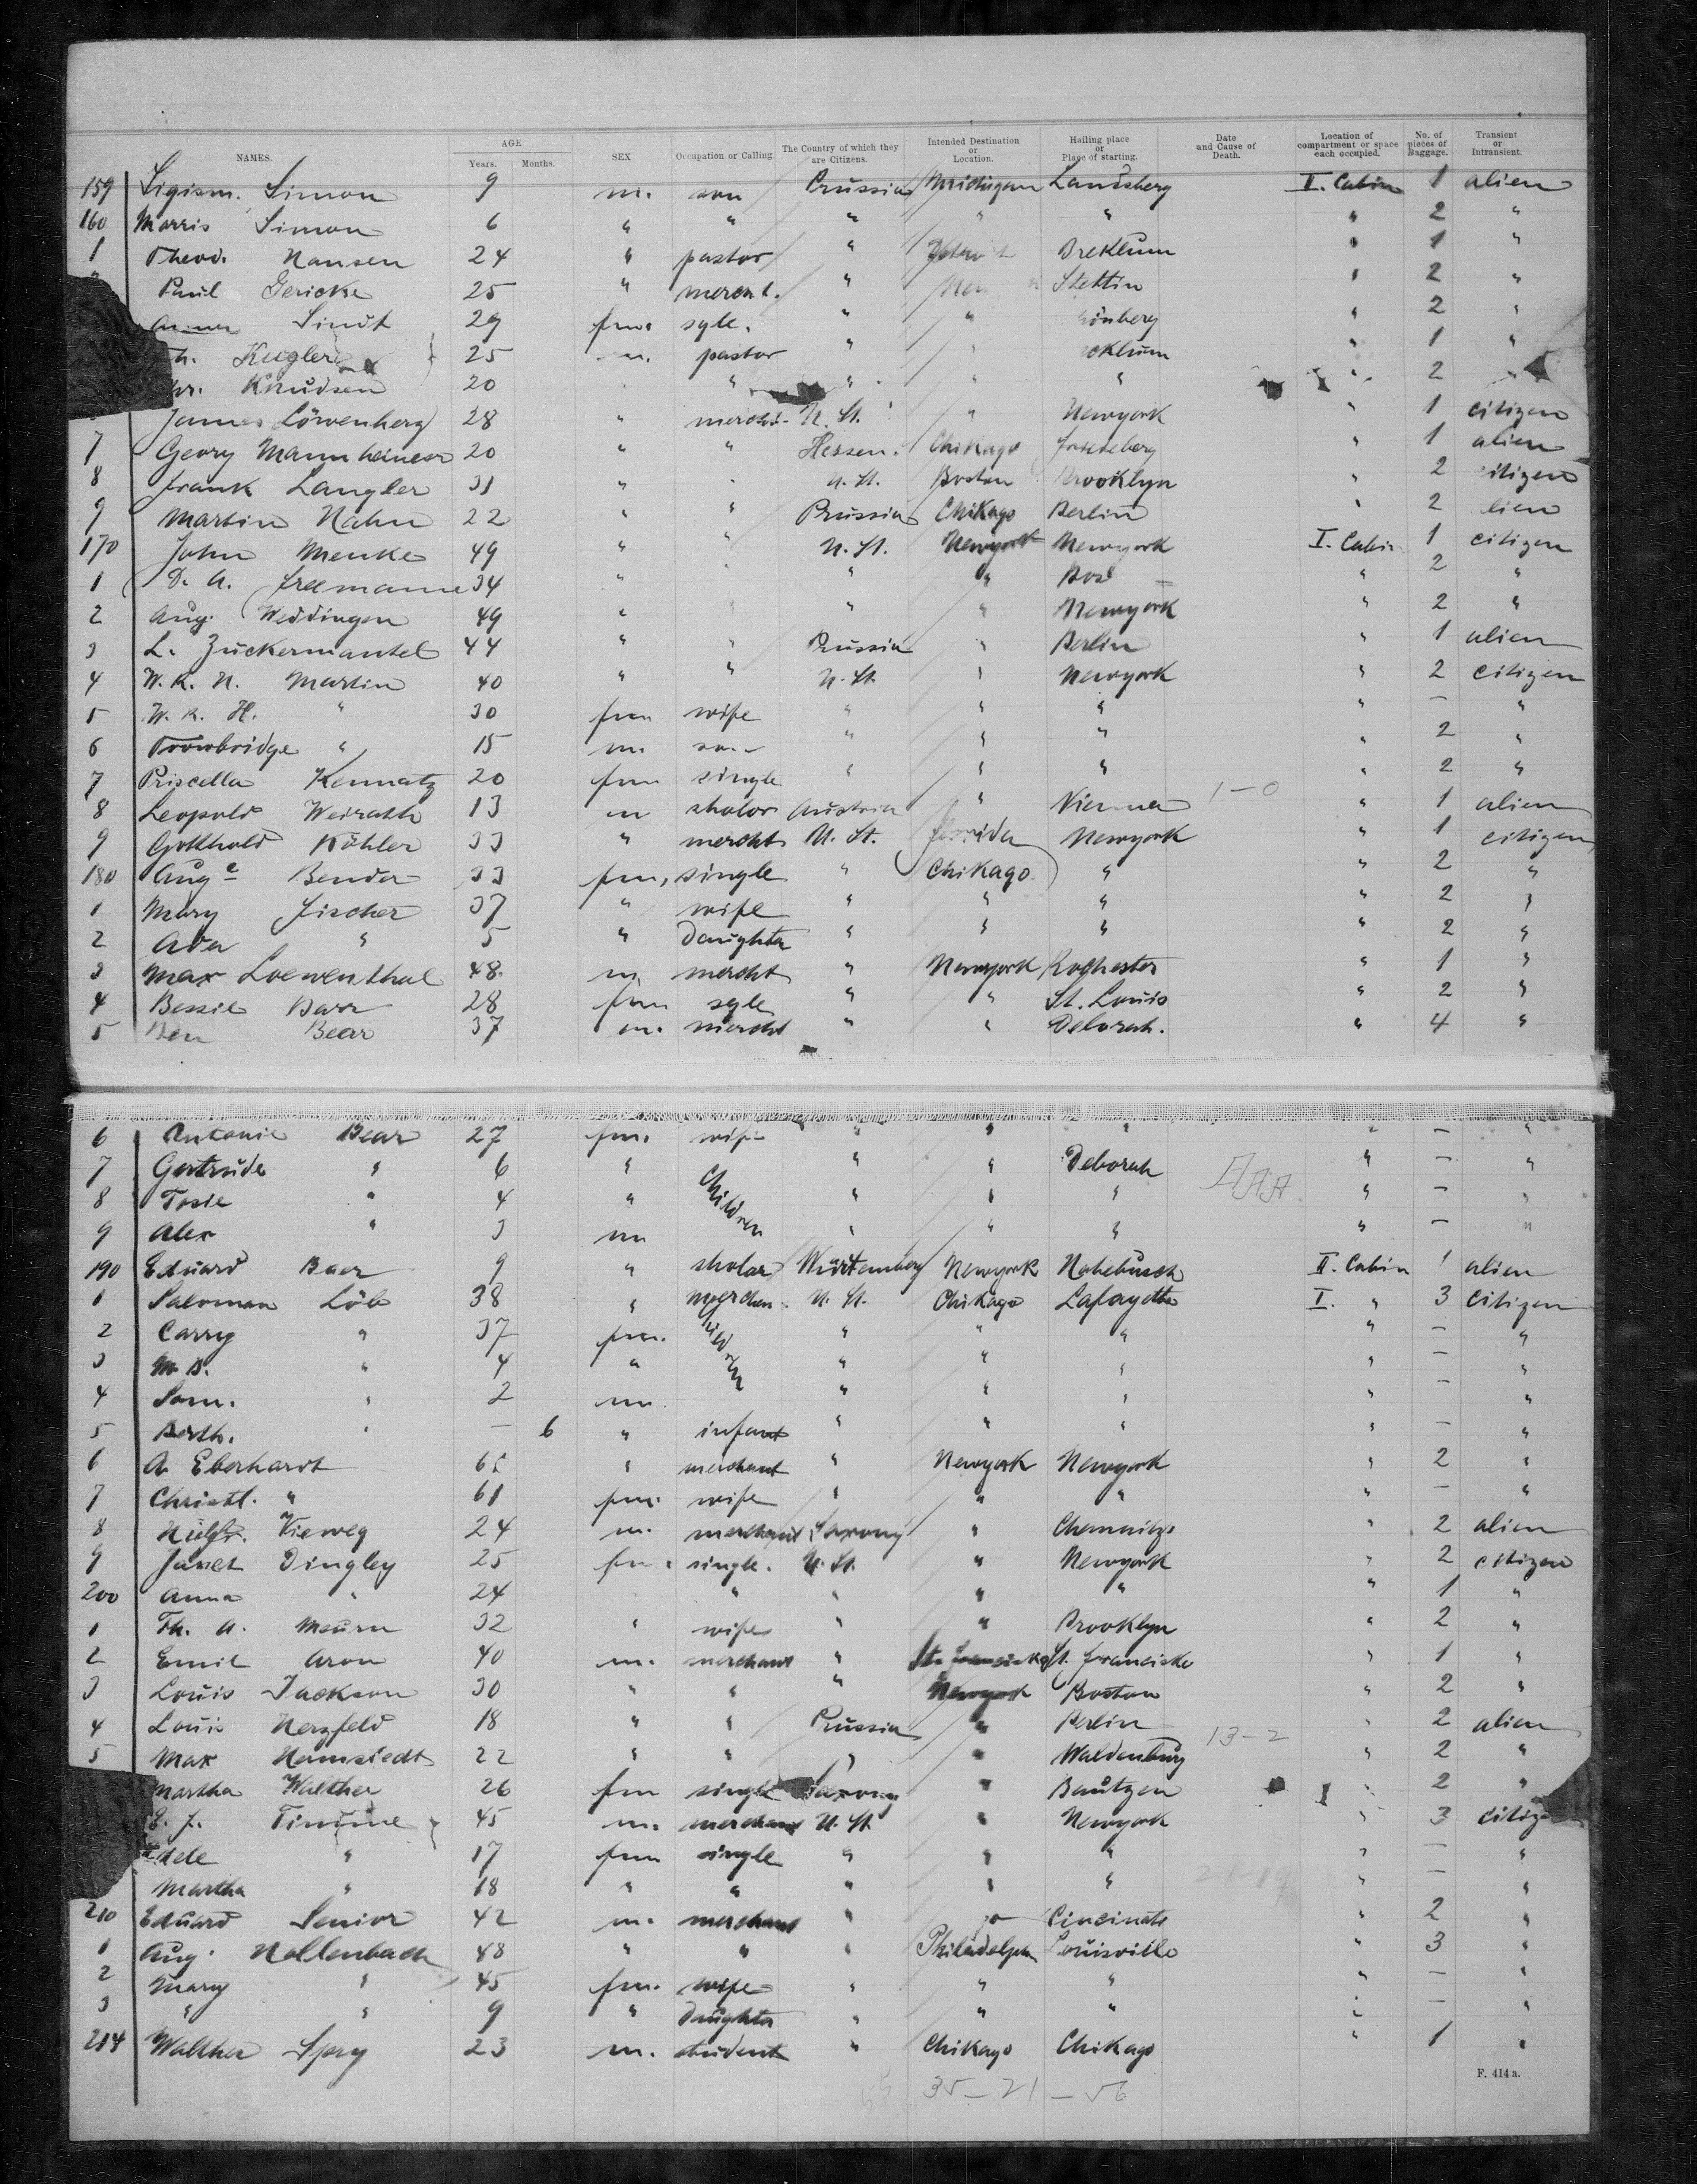 NAMES. AGE Years. Months. SEX Occupation or Calling. The Country of which they are Citizens. Intended Destination or Location. Hailing place or Place of starting. Date and Cause of Death. Location of compartment or space each occupied. No. of pieces of Baggage. Transient or Intransient.
159 Sigism. Simon 9 m. son Prussia Michigan Landsberg I. Cabin 1 alien
160 Morris Simon 6 " " " " " " 2 "
1 Theod. Hansen 24 " pastor " Breklum " 1 "
Paul Gericke 25 " " Stettin " 2 "
Sindt 29 fm. sgle. " " " 2 "
Th. Kügler 25 m. pastor " " " 1 "
Chr. Knudsen 20 " " " " 2
James Löwenberg 28 " U. St. " Newyork " 1 citizen
7 Georg Mannheimer 20 " " Hessen. Chikago " 1 alien
8 Frank Langler 31 " U. St. Boston Brooklyn 2 citizen
9 Martin Hahn 22 " " Prussia Chikago Berlin " 2 alien
170 John Menke 49 " " U. St. Newyork Newyork I. Cabin 1 citizen
1 D. A. Freemann 34 " " " " 2 "
2 Aug. Weddingen 49 " " " " Newyork " 2 "
3 L. Zuckermantel 44 " " Prussia " Berlin " 1 alien
4 W. R. H. Martin 40 " " U. St. " Newyork " 2 citizen
5 W. R. H. " 30 fm wife " " " " — "
6 Trowbridge " 15 m. son " " " " 2 "
7 Priscella Kennatz 20 fm single " " " " 2 "
8 Leopold Weirath 13 m scholar Austria " Vienna 1–0 " 1 alien
9 Gotthold Köhler 33 " mercht U. St. Florida Newyork " 1 citizen
180 Aug e Bender 33 fm, single " Chikago " " 2 "
1 Mary Fischer 37 " wife " " " " 2 "
2 Ada " 5 " Daughter " " " " 2 "
3 Max Loewenthal 48. m mercht " Newyork Rochester " 1 "
4 Bessie Barr 28 fm sgle " " St. Louis " 2 "
5 Ben Bear 37 m. mercht " " Deborah. " 4 "
6 Antonie Bear 27 fm. wife " " " " — "
7 Gertrude " 6 " Children " " Deborah " — "
8 Tosie " 4 " " " " " — "
9 Alex " 3 m " " " " — "
190 Eduard Baer 9 " scholar Würtemberg Newyork II. Cabin 1 alien
1 Saloman Löb 38 " merchan U. St. Chikago Lafayette I. " 3 citizen
2 Carry " 37 fm. " " " " — "
3 M. B. " 4 " " " " " — "
4 Sam. " 2 m. " " " " — "
5 Berth. " — 6 " infant " " " " — "
6 A. Eberhardt 65 " merchant " Newyork Newyork " 2 "
7 Christl. " 61 fm. wife " " " " — "
8 Vieweg 24 m. merchant Saxony " Chemnitz " 2 alien
9 Janet Dingley 25 fm. single. U. St. " Newyork " 2 citizen
200 Anna " 24 " " " " " 1 "
1 Th. A. 32 " wife " " Brooklyn " 2 "
2 Emil Aron 40 m. merchant " St. Franciska St. Franciske " 1 "
3 Louis Jackson 30 " " " Newyork Boston " 2 "
4 Louis Herzfeld 18 " " Prussia " Berlin 13–2 " 2 alien
5 Max Hermstedt 22 " " " " Waldenburg " 2 "
Martha Walther 26 fm single Saxony " Bautzen " 2 "
E. F. Timme 45 m. merchant U. St. " Newyork " 3 citizen
Adele " 17 fm single " " " " — "
Martha " 18 " " " " " " — "
210 Eduard Senior 42 m. merchant " " Cincinati " 2 "
1 Aug. Hollenbach 48 " " " Philadelphia Louisville " 3 "
2 Mary " 45 fm. wife " " " " — "
3 " " 9 " Daughter " " " " — "
214 Walther Spry 23 m. student " Chikago Chikago " 1 "
35–21–56
F. 414 a.